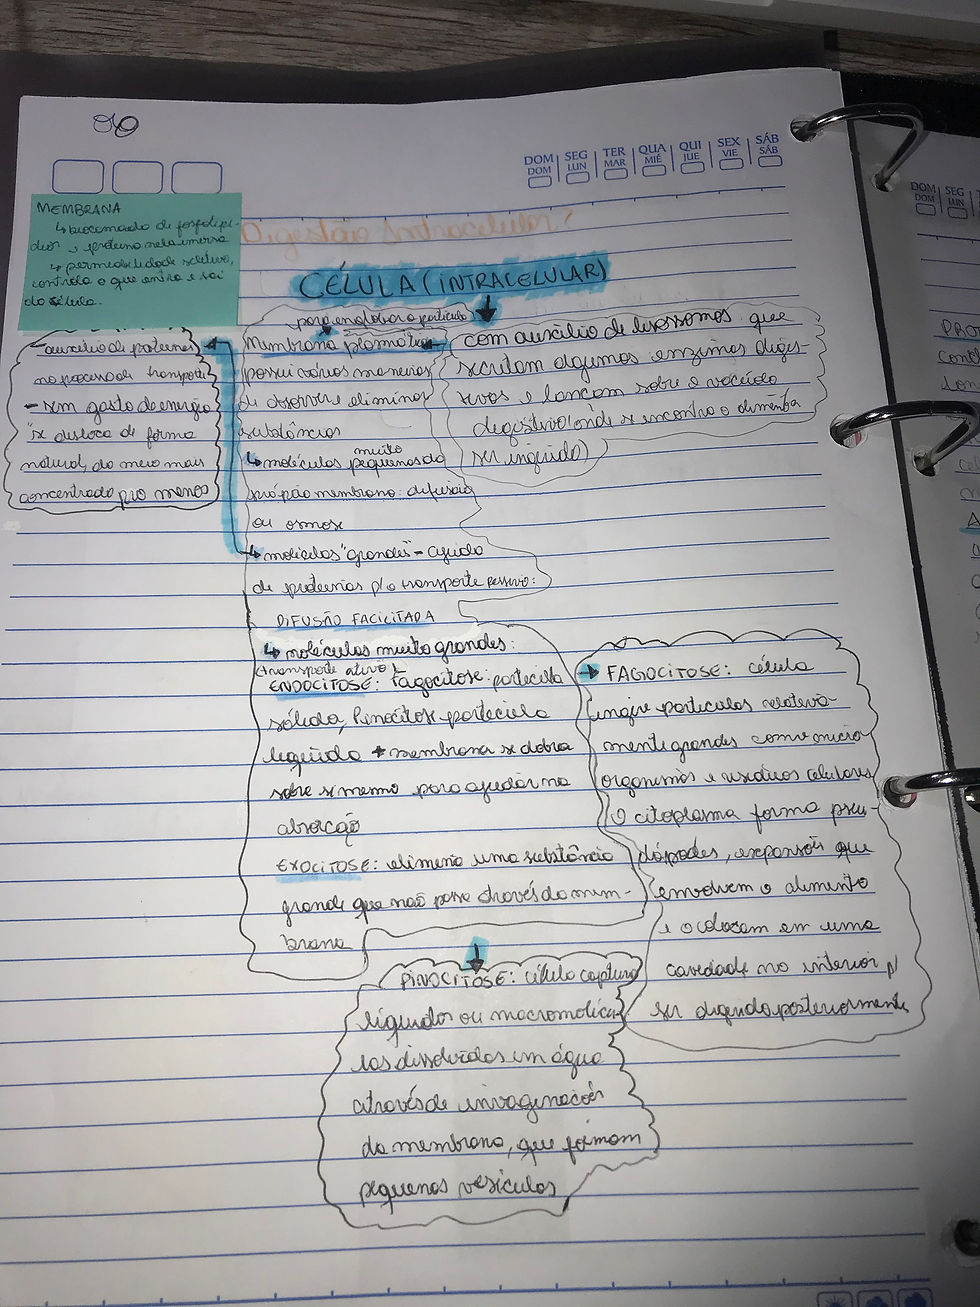 DOM SEG TER QUA QUI SEX SÁB
DOM LUN MAR MIÉ JUE VIE SÁB
DOM SEG
DOM LUN
MEMBRANA
↳ bicamada de fosfolipí-
dios e proteína nela imersa
↳ permeabilidade seletiva,
controla o que entra e sai
da célula.
Digestão Intracelular:
CÉLULA (INTRACELULAR)
para endobar a partícula
com auxílio de lisossomos que
secretam algumas enzimas diges-
tivas e lançam sobre o vacúolo
digestivo (onde se encontra o alimento
ser ingerido)
- auxílio de proteínas
no processo de transporte
- sem gasto de energia
"se desloca de forma
natural, do meio mais
concentrado pro menos
Membrana plasmática
possui várias maneiras
de absorver e eliminar
substâncias
↳ moléculas muito pequenas da
própria membrana: difusão
ou osmose
↳ moléculas "grandes" - ajuda
de proteínas p/ o transporte passivo:
DIFUSÃO FACILITADA
↳ moléculas muito grandes:
(transporte ativo)
ENDOCITOSE: Fagocitose: partícula
sólida, Pinocitose partícula
líquida + membrana se dobra
sobre si mesma para ajudar na
absorção
EXOCITOSE: elimina uma substância
grande que não passa através da mem-
brana
FAGOCITOSE: célula
ingere partículas relativa-
mente grandes como micro
organismos e resíduos celulares
O citoplasma forma pseu-
dópodes, expansões que
envolvem o alimento
e o colocam em uma
cavidade no interior p/
ser digerido posteriormente
PINOCITOSE: célula captura
líquidos ou macromolécu-
las dissolvidas em água
através de invaginações
da membrana, que formam
pequenas vesículas